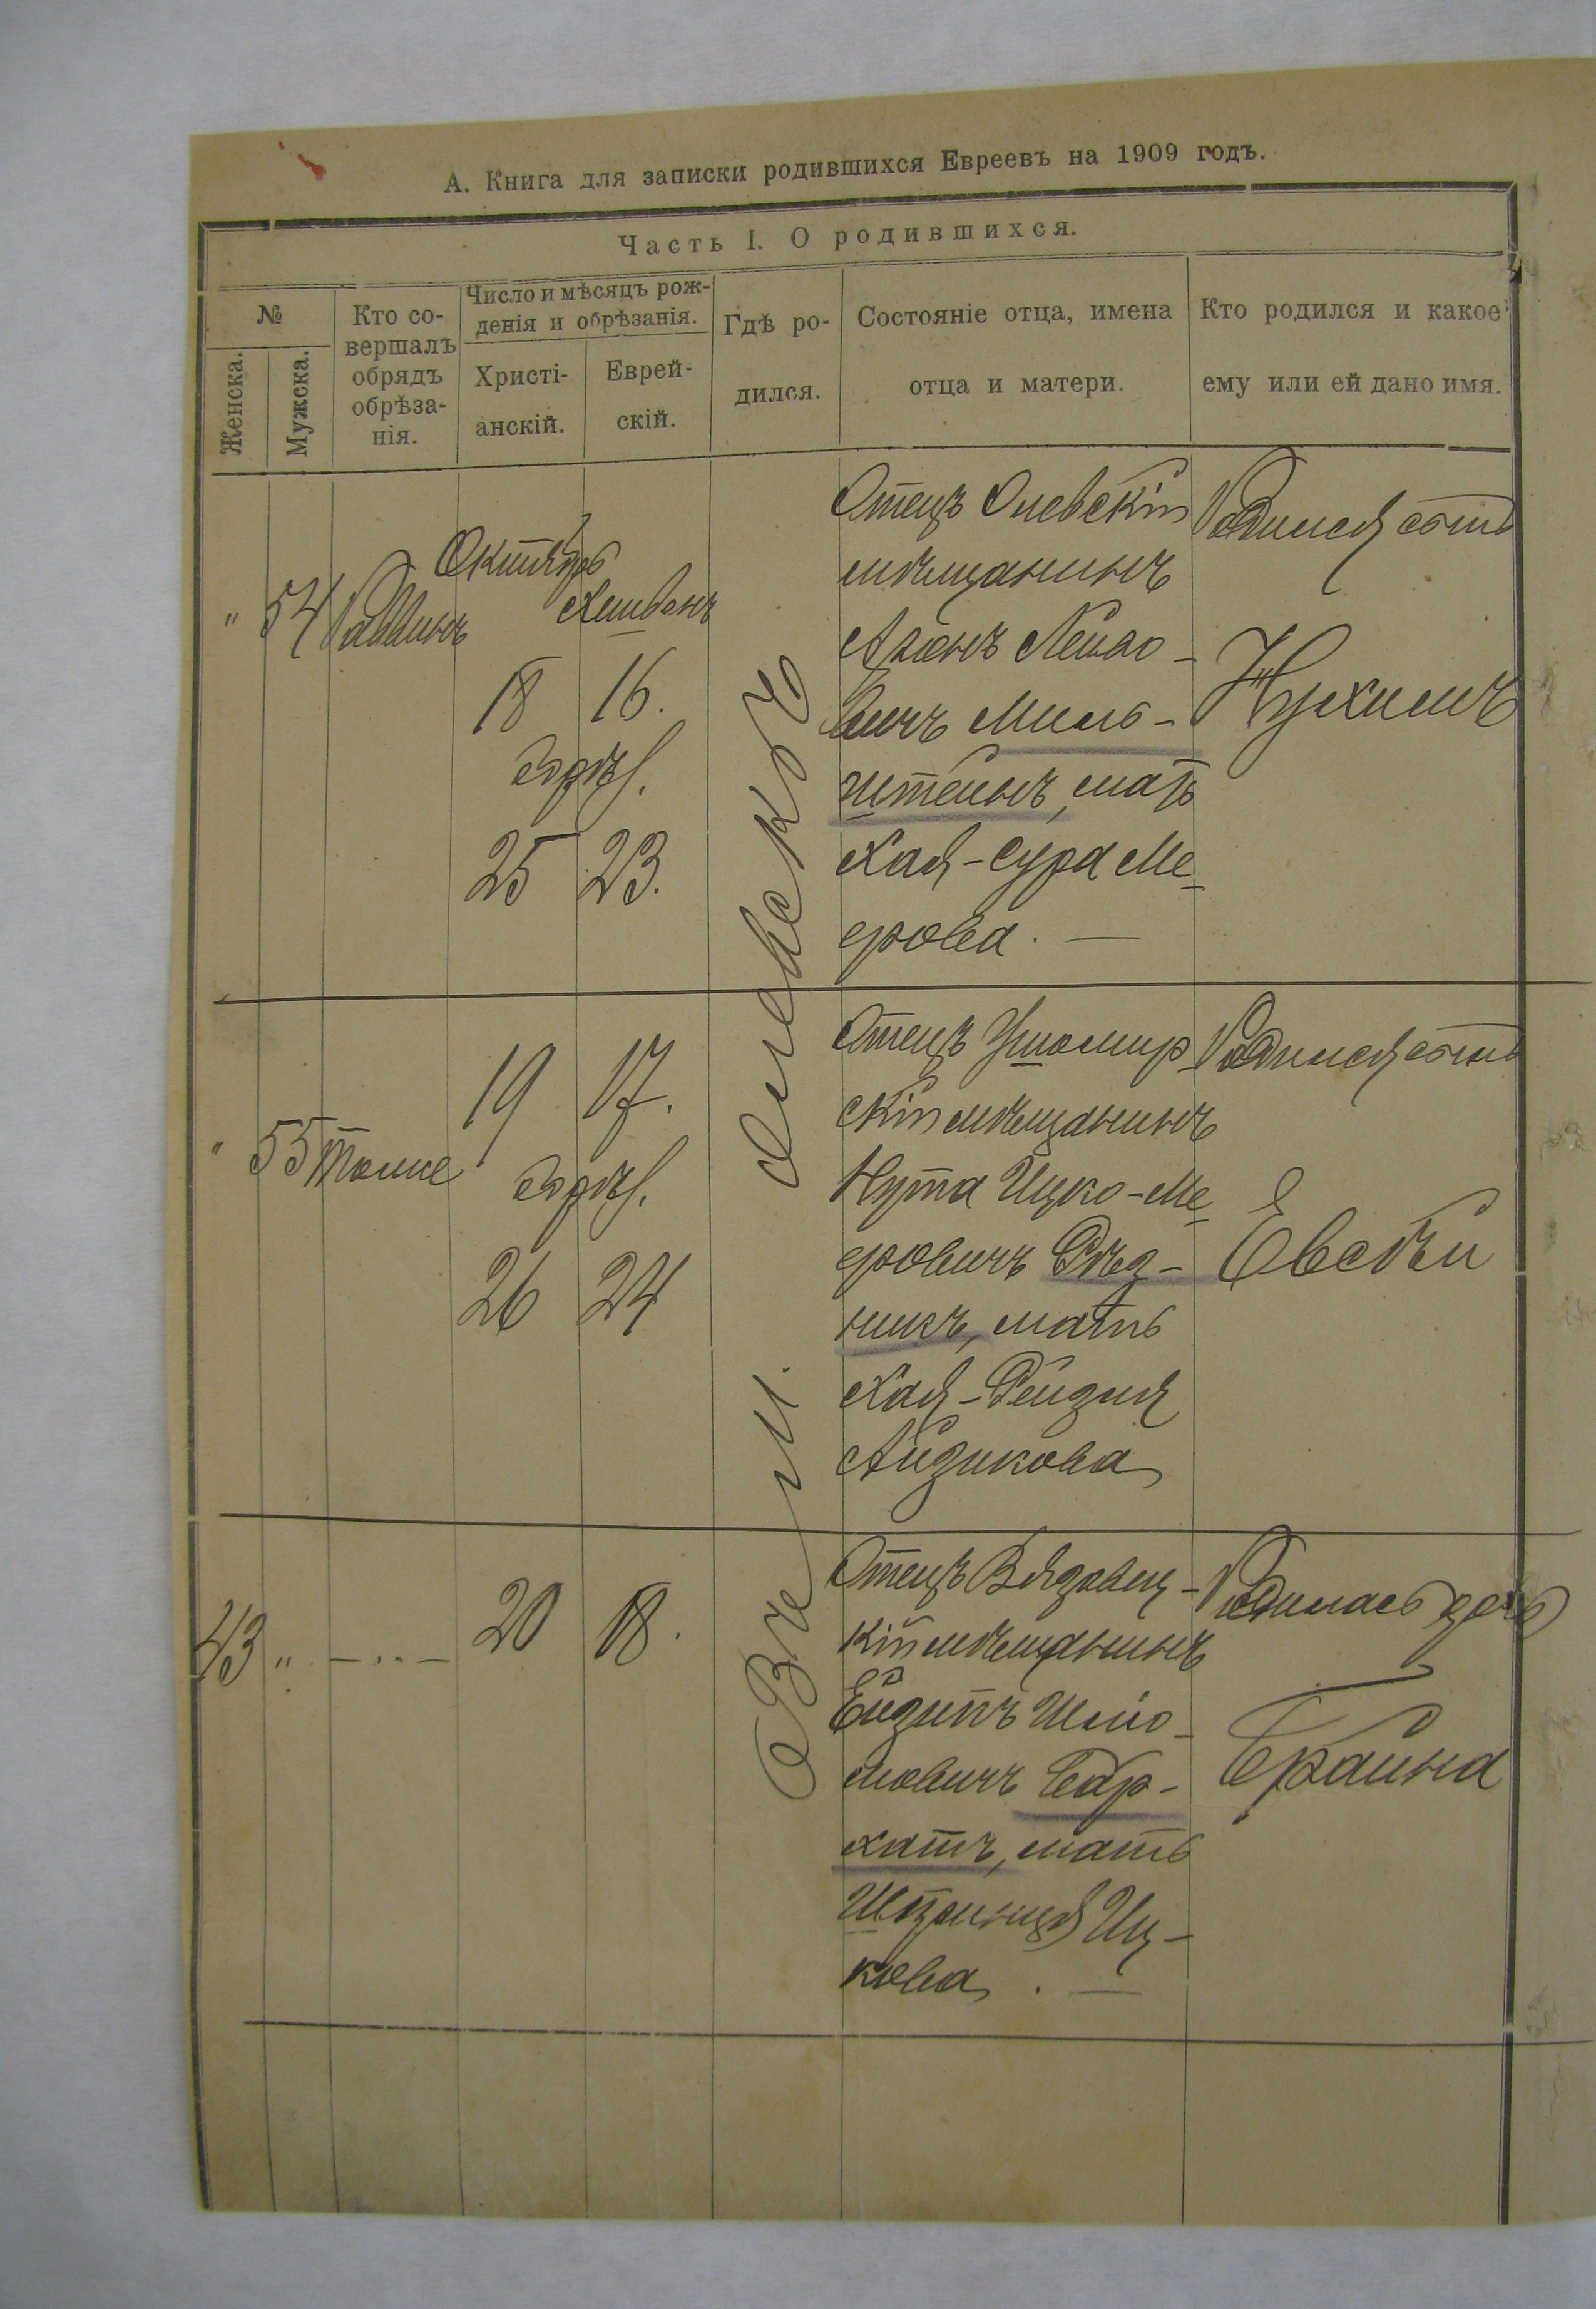 А. Книга для записки родившихся Евреевъ на 1909 годъ.
Часть I. О родившихся.
№
Женска.
Мужска.
Кто со-
вершалъ
обрядъ
обрѣза-
нія.
Число и мѣсяцъ рож-
денія и обрѣзанія.
Христі-
анскій.
Еврей-
скій.
Гдѣ ро-
дился.
Состояніе отца, имена
отца и матери.
Кто родился и какое
ему или ей дано имя.
" 54 Раввинъ
Октябрь
Хешванъ
18 16.
обрѣз.
25 23.
Въ м. Олевскѣ
Отецъ Олевскій
мѣщанинъ
Аронъ Лейзо-
вичъ Миль-
штейнъ, мать
Хая-Сура Ме-
ерова. —
Родился сынъ
Нухимъ
" 55 Тоже
19 17.
обрѣз.
26 24
Отецъ Ушомир-
скій мѣщанинъ
Нута Ицко-Ме-
еровичъ Рѣз-
никъ, мать
Хая-Рейзля
Айзикова
Родился сынъ
Евсѣй
43 " — " —
20 18.
Отецъ Вязовец-
кій мѣщанинъ
Шліо-
мовичъ Бар-
хатъ, мать
Шпринця Иц-
кова. —
Родилась дочь
Брайна